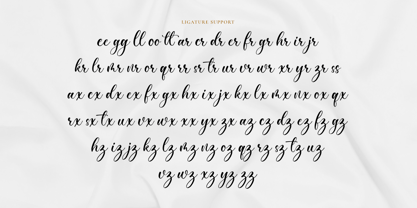 LIGATURE SUPPORT
ee gg ll oo tt ar cr dr er fr gr hr ir jr
kr lr mr nr or qr rr sr tr ur vr wr xr yr zr ss
ax cx dx ex fx gx hx ix jx kx lx mx nx ox
rx sx tx ux vx wx xx yx zx az cz dz ez fz gz
hz iz jz kz lz mz nz oz qz rz sz tz uz
vz wz xz yz zz